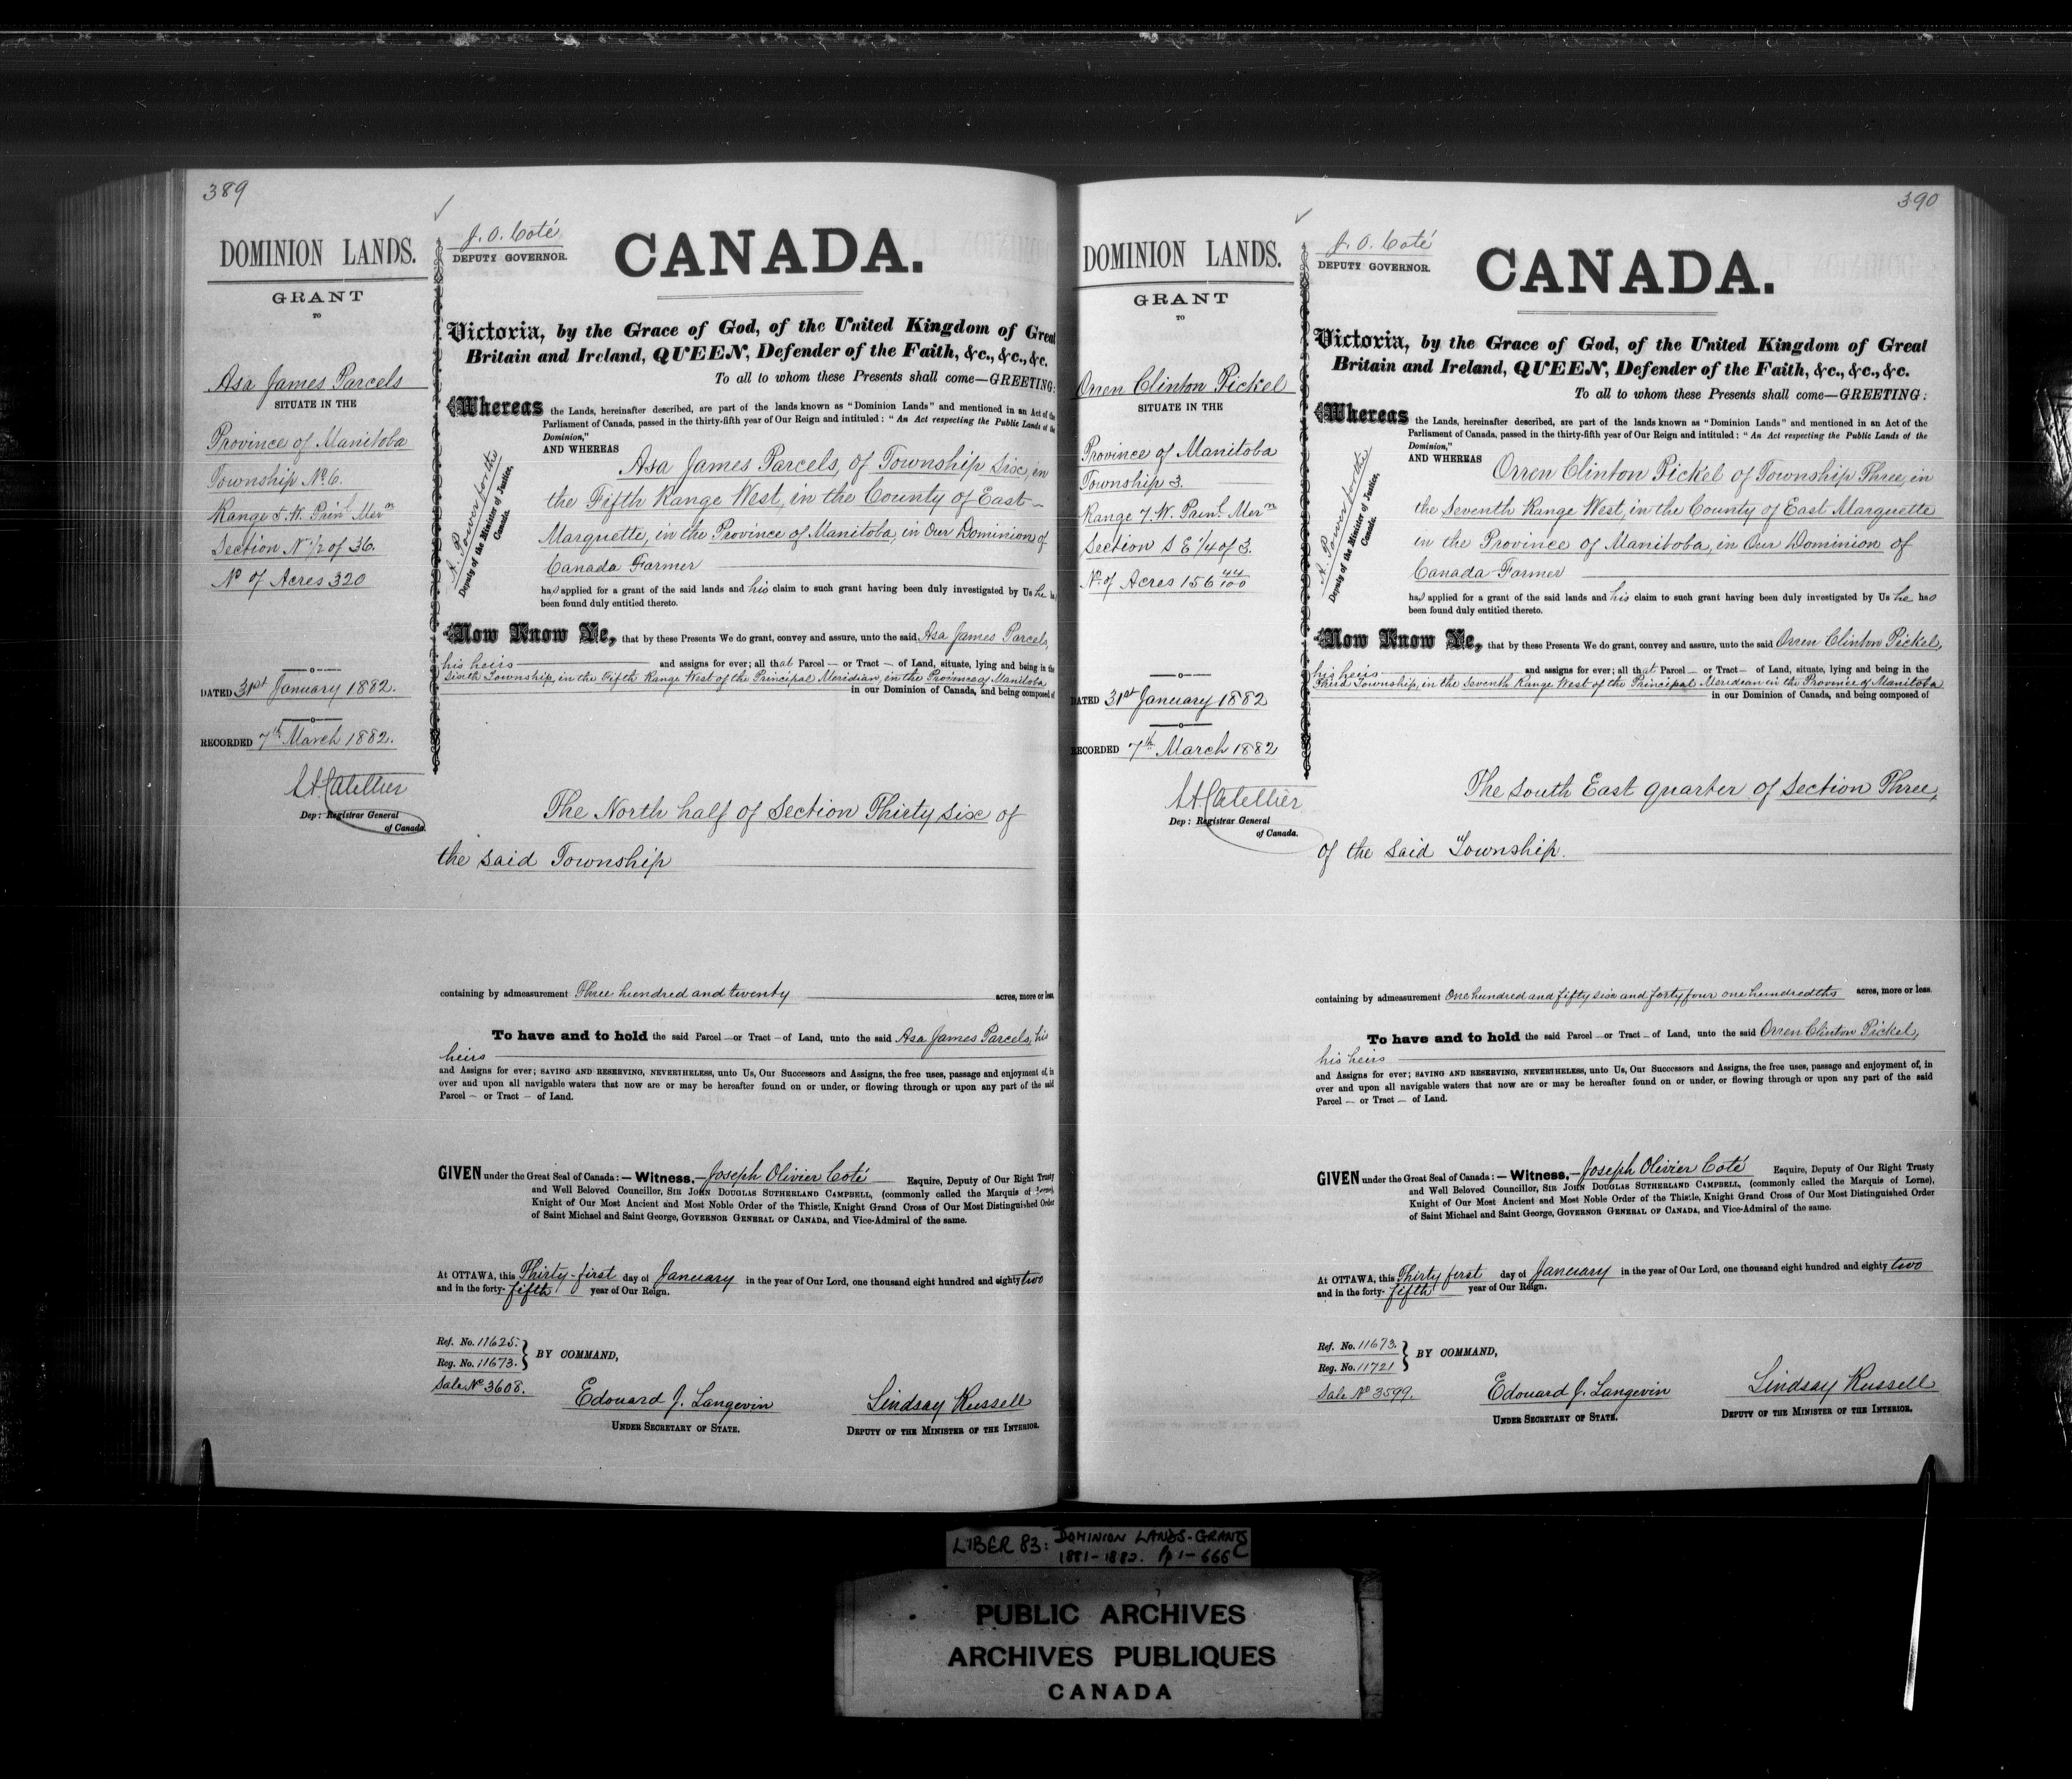 389
DOMINION LANDS.
GRANT
TO
Asa James Parcels
SITUATE IN THE
Province of Manitoba
Township No 6.
Range 5 W. Prinl. Mern
Section N 1/2 of 36.
No of Acres 320
DATED 31st January 1882.
RECORDED 7th March 1882.
Dep: Registrar General
of Canada.
J. O. Coté
DEPUTY GOVERNOR.
CANADA.
A. Power for the
Deputy of the Minister of Justice,
Canada.
Victoria, by the Grace of God, of the United Kingdom of Great
Britain and Ireland, QUEEN, Defender of the Faith, &c., &c., &c.
To all to whom these Presents shall come—GREETING:
Whereas the Lands, hereinafter described, are part of the lands known as "Dominion Lands" and mentioned in an Act of the
Parliament of Canada, passed in the thirty-fifth year of Our Reign and intituled: "An Act respecting the Public Lands of the
Dominion,"
AND WHEREAS Asa James Parcels, of Township Six, in
the Fifth Range West, in the County of East
Marquette, in the Province of Manitoba, in Our Dominion of
Canada Farmer
has applied for a grant of the said lands and his claim to such grant having been duly investigated by Us he has
been found duly entitled thereto.
Now Know Ye, that by these Presents We do grant, convey and assure, unto the said Asa James Parcels,
his heirs and assigns for ever; all that Parcel — or Tract — of Land, situate, lying and being in the
Sixth Township, in the Fifth Range West of the Principal Meridian, in the Province of Manitoba
in our Dominion of Canada, and being composed of
The North half of Section Thirty six of
the said Township
containing by admeasurement Three hundred and twenty acres, more or less
To have and to hold the said Parcel — or Tract — of Land, unto the said Asa James Parcels, his
heirs
and Assigns for ever; SAVING AND RESERVING, NEVERTHELESS, unto Us, Our Successors and Assigns, the free uses, passage and enjoyment of, in
over and upon all navigable waters that now are or may be hereafter found on or under, or flowing through or upon any part of the said
Parcel — or Tract — of Land.
GIVEN under the Great Seal of Canada: — Witness, — Joseph Olivier Coté Esquire, Deputy of Our Right Trusty
and Well Beloved Councillor, SIR JOHN DOUGLAS SUTHERLAND CAMPBELL, (commonly called the Marquis of Lorne),
Knight of Our Most Ancient and Most Noble Order of the Thistle, Knight Grand Cross of Our Most Distinguished Order
of Saint Michael and Saint George, GOVERNOR GENERAL OF CANADA, and Vice-Admiral of the same.
At OTTAWA, this Thirty-first day of January in the year of Our Lord, one thousand eight hundred and eighty two
and in the forty-fifth year of Our Reign.
Ref. No. 11625.
Reg. No. 11673.
BY COMMAND,
Sale No 3608.
Edouard J. Langevin
UNDER SECRETARY OF STATE.
Lindsay Russell
DEPUTY OF THE MINISTER OF THE INTERIOR.
390
DOMINION LANDS.
GRANT
TO
Orren Clinton Pickel
SITUATE IN THE
Province of Manitoba
Township 3.
Range 7. W. Prinl. Mern
Section S E 1/4 of 3.
No. of Acres 156 44/100
DATED 31st January 1882
RECORDED 7th March 1882
Dep: Registrar General
of Canada.
J. O. Coté
DEPUTY GOVERNOR.
CANADA.
A. Power for the
Deputy of the Minister of Justice,
Canada.
Victoria, by the Grace of God, of the United Kingdom of Great
Britain and Ireland, QUEEN, Defender of the Faith, &c., &c., &c.
To all to whom these Presents shall come—GREETING:
Whereas the Lands, hereinafter described, are part of the lands known as "Dominion Lands" and mentioned in an Act of the
Parliament of Canada, passed in the thirty-fifth year of Our Reign and intituled: "An Act respecting the Public Lands of the
Dominion,"
AND WHEREAS Orren Clinton Pickel of Township Three, in
the Seventh Range West, in the County of East Marquette
in the Province of Manitoba, in Our Dominion of
Canada Farmer
has applied for a grant of the said lands and his claim to such grant having been duly investigated by Us he has
been found duly entitled thereto.
Now Know Ye, that by these Presents We do grant, convey and assure, unto the said Orren Clinton Pickel,
his heirs and assigns for ever; all that Parcel — or Tract — of Land, situate, lying and being in the
Third Township, in the Seventh Range West of the Principal Meridian in the Province of Manitoba
in our Dominion of Canada, and being composed of
The South East quarter of Section Three,
of the said Township.
containing by admeasurement One hundred and fifty six and forty four one hundredths acres, more or less.
To have and to hold the said Parcel — or Tract — of Land, unto the said Orren Clinton Pickel,
his heirs
and Assigns for ever; SAVING AND RESERVING, NEVERTHELESS, unto Us, Our Successors and Assigns, the free uses, passage and enjoyment of, in
over and upon all navigable waters that now are or may be hereafter found on or under, or flowing through or upon any part of the said
Parcel — or Tract — of Land.
GIVEN under the Great Seal of Canada: — Witness, — Joseph Olivier Coté Esquire, Deputy of Our Right Trusty
and Well Beloved Councillor, SIR JOHN DOUGLAS SUTHERLAND CAMPBELL, (commonly called the Marquis of Lorne),
Knight of Our Most Ancient and Most Noble Order of the Thistle, Knight Grand Cross of Our Most Distinguished Order
of Saint Michael and Saint George, GOVERNOR GENERAL OF CANADA, and Vice-Admiral of the same.
At OTTAWA, this Thirty first day of January in the year of Our Lord, one thousand eight hundred and eighty two
and in the forty-fifth year of Our Reign.
Ref. No. 11673.
Reg. No. 11721
BY COMMAND,
Sale No 3599.
Edouard J. Langevin
UNDER SECRETARY OF STATE.
Lindsay Russell
DEPUTY OF THE MINISTER OF THE INTERIOR.
LIBER 83: DOMINION LANDS-GRANTS
1881-1882. Pp 1-666
PUBLIC ARCHIVES
ARCHIVES PUBLIQUES
CANADA